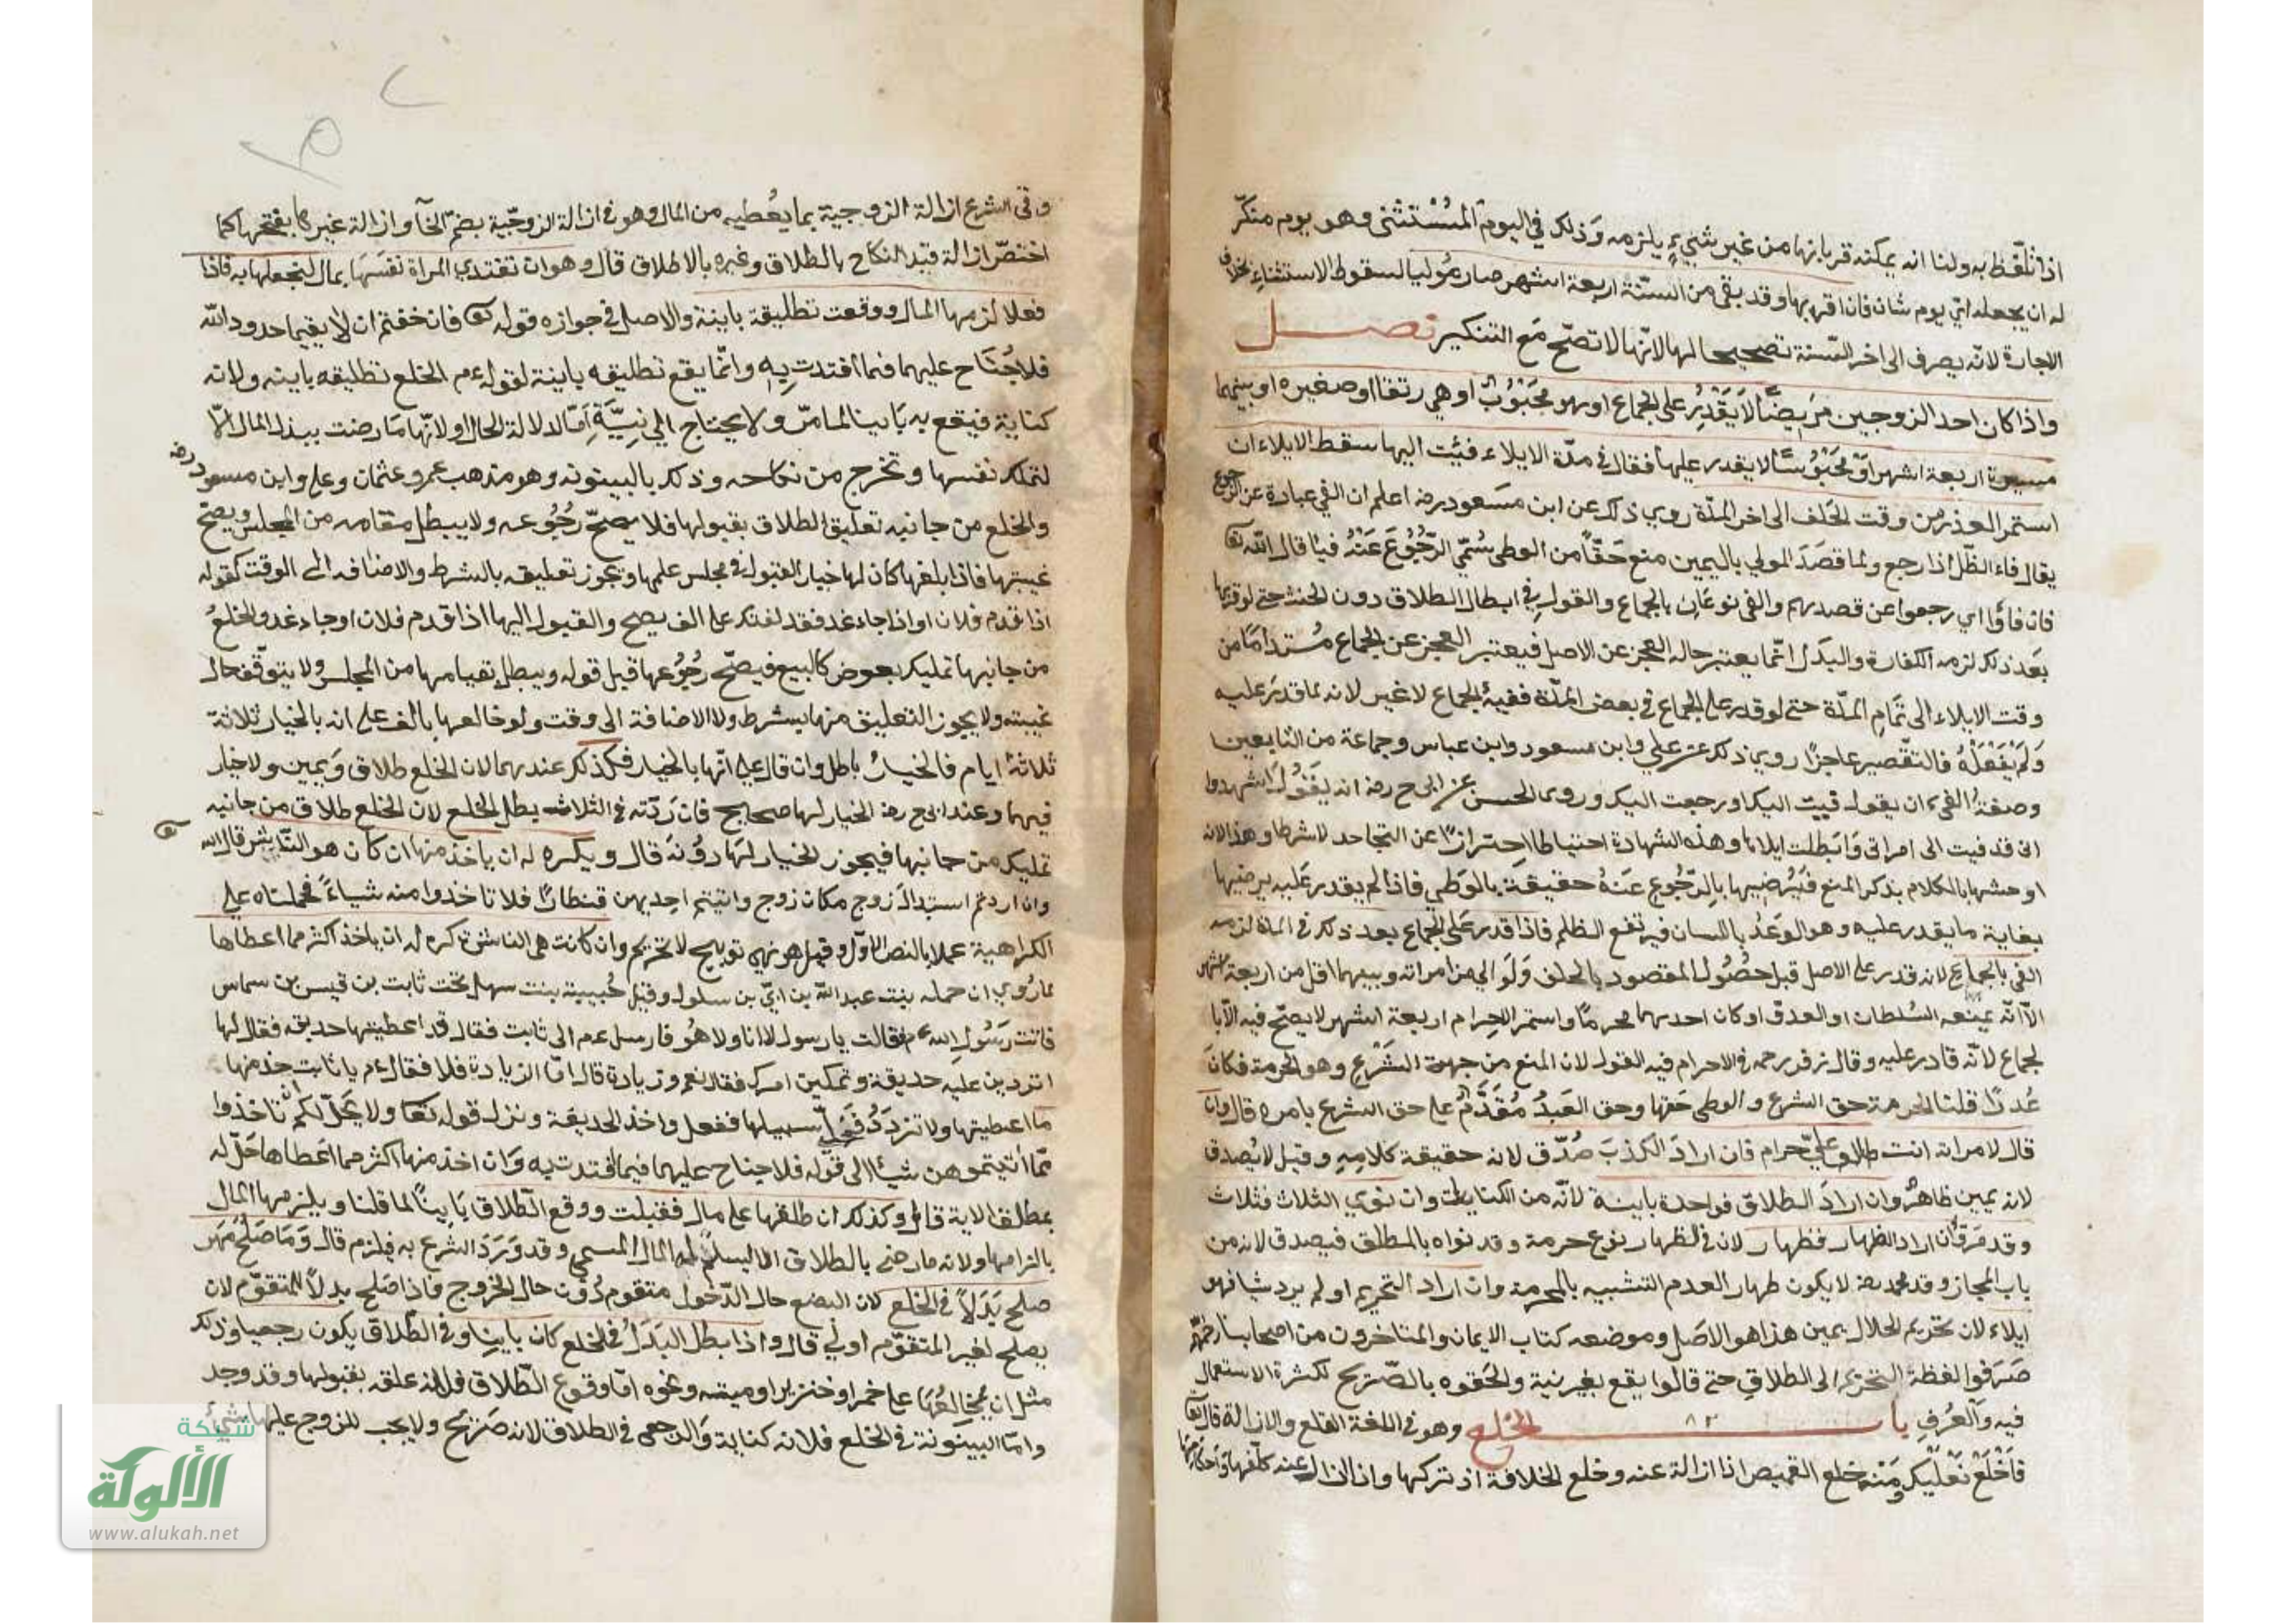 اذا تلفظ به ولنا انه يمكنه قربانها من غير شيء يلزمه وذلك في اليوم المستثنى وهو يوم منكر
له ان يجعله اي يوم شاء فان اقربها وقد بقي من السنة اربعة اشهر صار موليا لسقوط الاستثناء بخلاف
الاجارة لانه يصرف الى اخر السنة تصحيحا لها لانها لا تصح مع التنكير فصل
واذا كان احد الزوجين مريضا لا يقدر على الجماع او هو مجبوب او هي رتقا او صغيرة او بينهما
مسيرة اربعة اشهر او محبوسا لا يقدر عليها فقال في مدة الايلاء فئت اليها سقط الايلاء ان
استمر العذر من وقت الحلف الى اخر المدة روي ذلك عن ابن مسعود رضه اعلم ان الفي عبارة عن الرجوع
يقال فاء الظل اذا رجع ولما قصد المولي باليمين منع حقها من الوطي سمي الرجوع عنه فيا قال الله تعا
فان فاؤا اي رجعوا عن قصدهم والفي نوعان بالجماع والقول في ابطال الطلاق دون الحنث حتى لو قربها
بعد ذلك لزمه الكفارة والبدل انما يعتبر حالة العجز عن الاصل فيعتبر العجز عن الجماع مستداما من
وقت الايلاء الى تمام المدة حتى لو قدر على الجماع في بعض المدة ففيئه الجماع لا غير لانه لما قدر عليه
ولم يفعله فالتقصير عاجزا روي ذلك عن علي وابن مسعود وابن عباس وجماعة من التابعين
وصفة الفيء ان يقول فيت اليك او رجعت اليك وروى الحسن عن ابي ح رضه انه يقول اشهدوا
اني قد فيت الى امراتي وابطلت ايلاها وهذه الشهادة احتياطا احترازا عن التجاحد لا شرطا وهذا لانه
اوحشها بالكلام بذكر المنع فيرضيها بالرجوع عنه حقيقة بالوطي فاذا لم يقدر عليه يرضيها
بغاية ما يقدر عليه وهو الوعد باللسان فيرتفع الظلم فاذا قدر على الجماع بعد ذلك في المدة لزمه
الفي بالجماع لانه قدر على الاصل قبل حصول المقصود بالحلف ولو الى من امراته وبينهما اقل من اربعة اشهر
الا انه يمنعه السلطان او العدو او كان احدهما محرما واستمر الاحرام اربعة اشهر لا يصح فيه الا با
لجماع لانه قادر عليه وقال زفر رحمه في الاحرام فيه القول لان المنع من جهة الشرع وهو الحرمة فكان
عذرا قلنا الحرمة حق الشرع والوطي حقها وحق العبد مقدم على حق الشرع بامره قال وان
قال لامراته انت علي حرام فان اراد الكذب صدق لانه حقيقة كلامه وقيل لا يصدق
لانه يمين ظاهرا وان اراد الطلاق فواحدة باينة لانه من الكنايات وان نوى الثلاث فثلاث
وقد مر وان اراد الظهار فظهار لان في الظهار نوع حرمة وقد نواه بالمطلق فيصدق لانه من
باب المجاز وقد محمد رضه لا يكون ظهار العدم التشبيه بالمحرمة وان اراد التحريم او لم يرد شيا فهو
ايلاء لان تحريم الحلال يمين هذا هو الاصل وموضعه كتاب الايمان والمتاخرون من اصحابنا رحمهم
صرفوا لفظة التحريم الى الطلاق حتى قالوا يقع بغير نية والحقوه بالصريح لكثرة الاستعمال
فيه والعرف باب الخلع وهو في اللغة القلع والازالة قال تعا
فاخلع نعليك ومنه خلع القميص اذا ازاله عنه وخلع الخلافة اذ تركها وازال عنه كلفها واحكامها
وفي الشرع ازالة الزوجية بما يعطيه من المال وهو في ازالة الزوجية بضم الخآ وازالة غيرها بفتحها كما
اختص ازالة قيد النكاح بالطلاق وغيره بالاطلاق قال وهو ان تفتدي المراة نفسها بمال ليخلعها به فاذا
فعلا لزمها المال ووقعت تطليقة باينة والاصل في جوازه قوله تعا فان خفتم ان لا يقيما حدود الله
فلا جناح عليهما فيما افتدت به وانما يقع تطليقه باينة لقوله عم الخلع تطليقه باينه ولانه
كناية فيقع به باينا لما مر ولا يحتاج الى نية اما لدلالة الحال او لانها ما رضت ببذل المال الا
لتملك نفسها وتخرج من نكاحه وذلك بالبينونه وهو مذهب عمر وعثمان وعلي وابن مسعود رضه
والخلع من جانبه تعليق الطلاق بقبولها فلا يصح رجوعه ولا يبطل مقامه من المجلس ويصح
غيبتها فاذا بلغها كان لها خيار القبول في مجلس علمها ويجوز تعليقه بالشرط والاضافة الى الوقت كقوله
اذا قدم فلان او اذا جاء غد فقد خالعتك على الف يصح والقبول اليها اذا قدم فلان او جاء غد والخلع
من جانبها تمليك بعوض كالبيع فيصح رجوعها قبل قوله ويبطل بقيامها من المجلس ولا يتوقف حال
غيبته ولا يجوز التعليق منها بشرط ولا الاضافة الى وقت ولو خالعها بالف على انه بالخيار ثلاثة
ثلاثة ايام فالخيار باطل وان قال على انها بالخيار فكذلك عندهما لان الخلع طلاق ويمين ولا خيار
فيهما وعند ابي ح رضه الخيار لها صحيح فان ردته في الثلاث بطل الخلع لان الخلع طلاق من جانبه
تمليك من جانبها فيجوز الخيار لها دونه قال ويكره له ان ياخذ منها ان كان هو الناشز قال الله تعا
وان اردتم استبدال زوج مكان زوج واتيتم احديهن قنطارا فلا تاخذوا منه شياء فحملناه على
الكراهية عملا بالنص الاول وقيل هو نهي توبيخ لا تحريم وان كانت هي الناشزة كره له ان ياخذ اكثر مما اعطاها
لما روي ان جمله بنت عبد الله بن ابي بن سلول وقيل حبيبة بنت سهل تحت ثابت بن قيس بن سماس
فاتت رسول الله عم فقالت يا رسول لا انا ولا هو فارسل عم الى ثابت فقال قد اعطيتها حديقه فقال لها
اتردين عليه حديقة وتملكين امرك فقال نعم وزيادة قال اما الزيادة فلا فقال عم يا ثابت خذ منها
ما اعطيتها ولا تزدد وخل سبيلها ففعل واخذ الحديقة ونزل قوله تعا ولا يحل لكم ان تاخذوا
مما اتيتموهن شيئا الى قوله فلا جناح عليهما فيما افتدت به وان اخذ منها اكثر مما اعطاها حل له
بمطلق الاية قال وكذلك ان طلقها على مال فقبلت ووقع الطلاق باينا لما قلنا ويلزمها المال
بالتزامها ولانه ما رضي بالطلاق الا ليسلم له المال المسمى وقد ورد الشرع به فلزم قال وما صلح مهر
صلح بدلا في الخلع لان البضع حال الدخول متقوم دون حال الخروج فاذا صلح بدلا للمتقوم لان
يصلح لغير المتقوم اولى قال واذا بطل البدل في الخلع كان باينا وفي الطلاق يكون رجعيا وذلك
مثل ان يخالعها على خمر او خنزير او ميته ونحوه اما وقوع الطلاق فلانه علق بقبولها وقد وجد
واما البينونة في الخلع فلانه كناية والرجعى في الطلاق لانه صريح ولا يجب للزوج عليها شيئ
شبكة
الألوكة
www.alukah.net